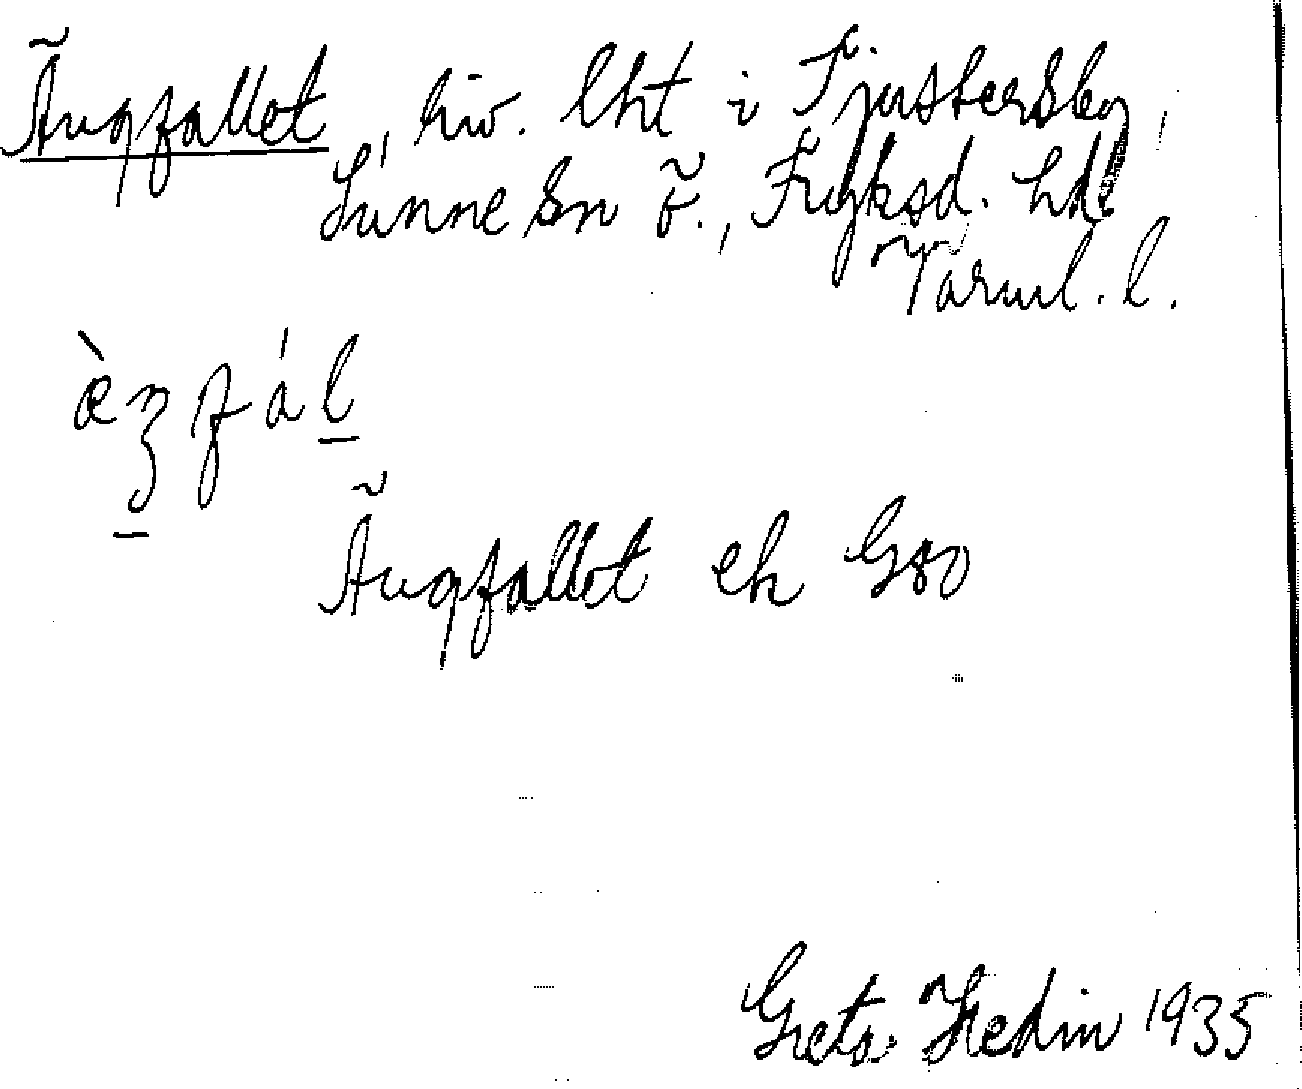 Ängfallet, kiv. lht i Tjustersby,
Sunne sn ö., Fryksd. hd
Värml. l.
Ängfallet ek G80
Greta Hedin 1935